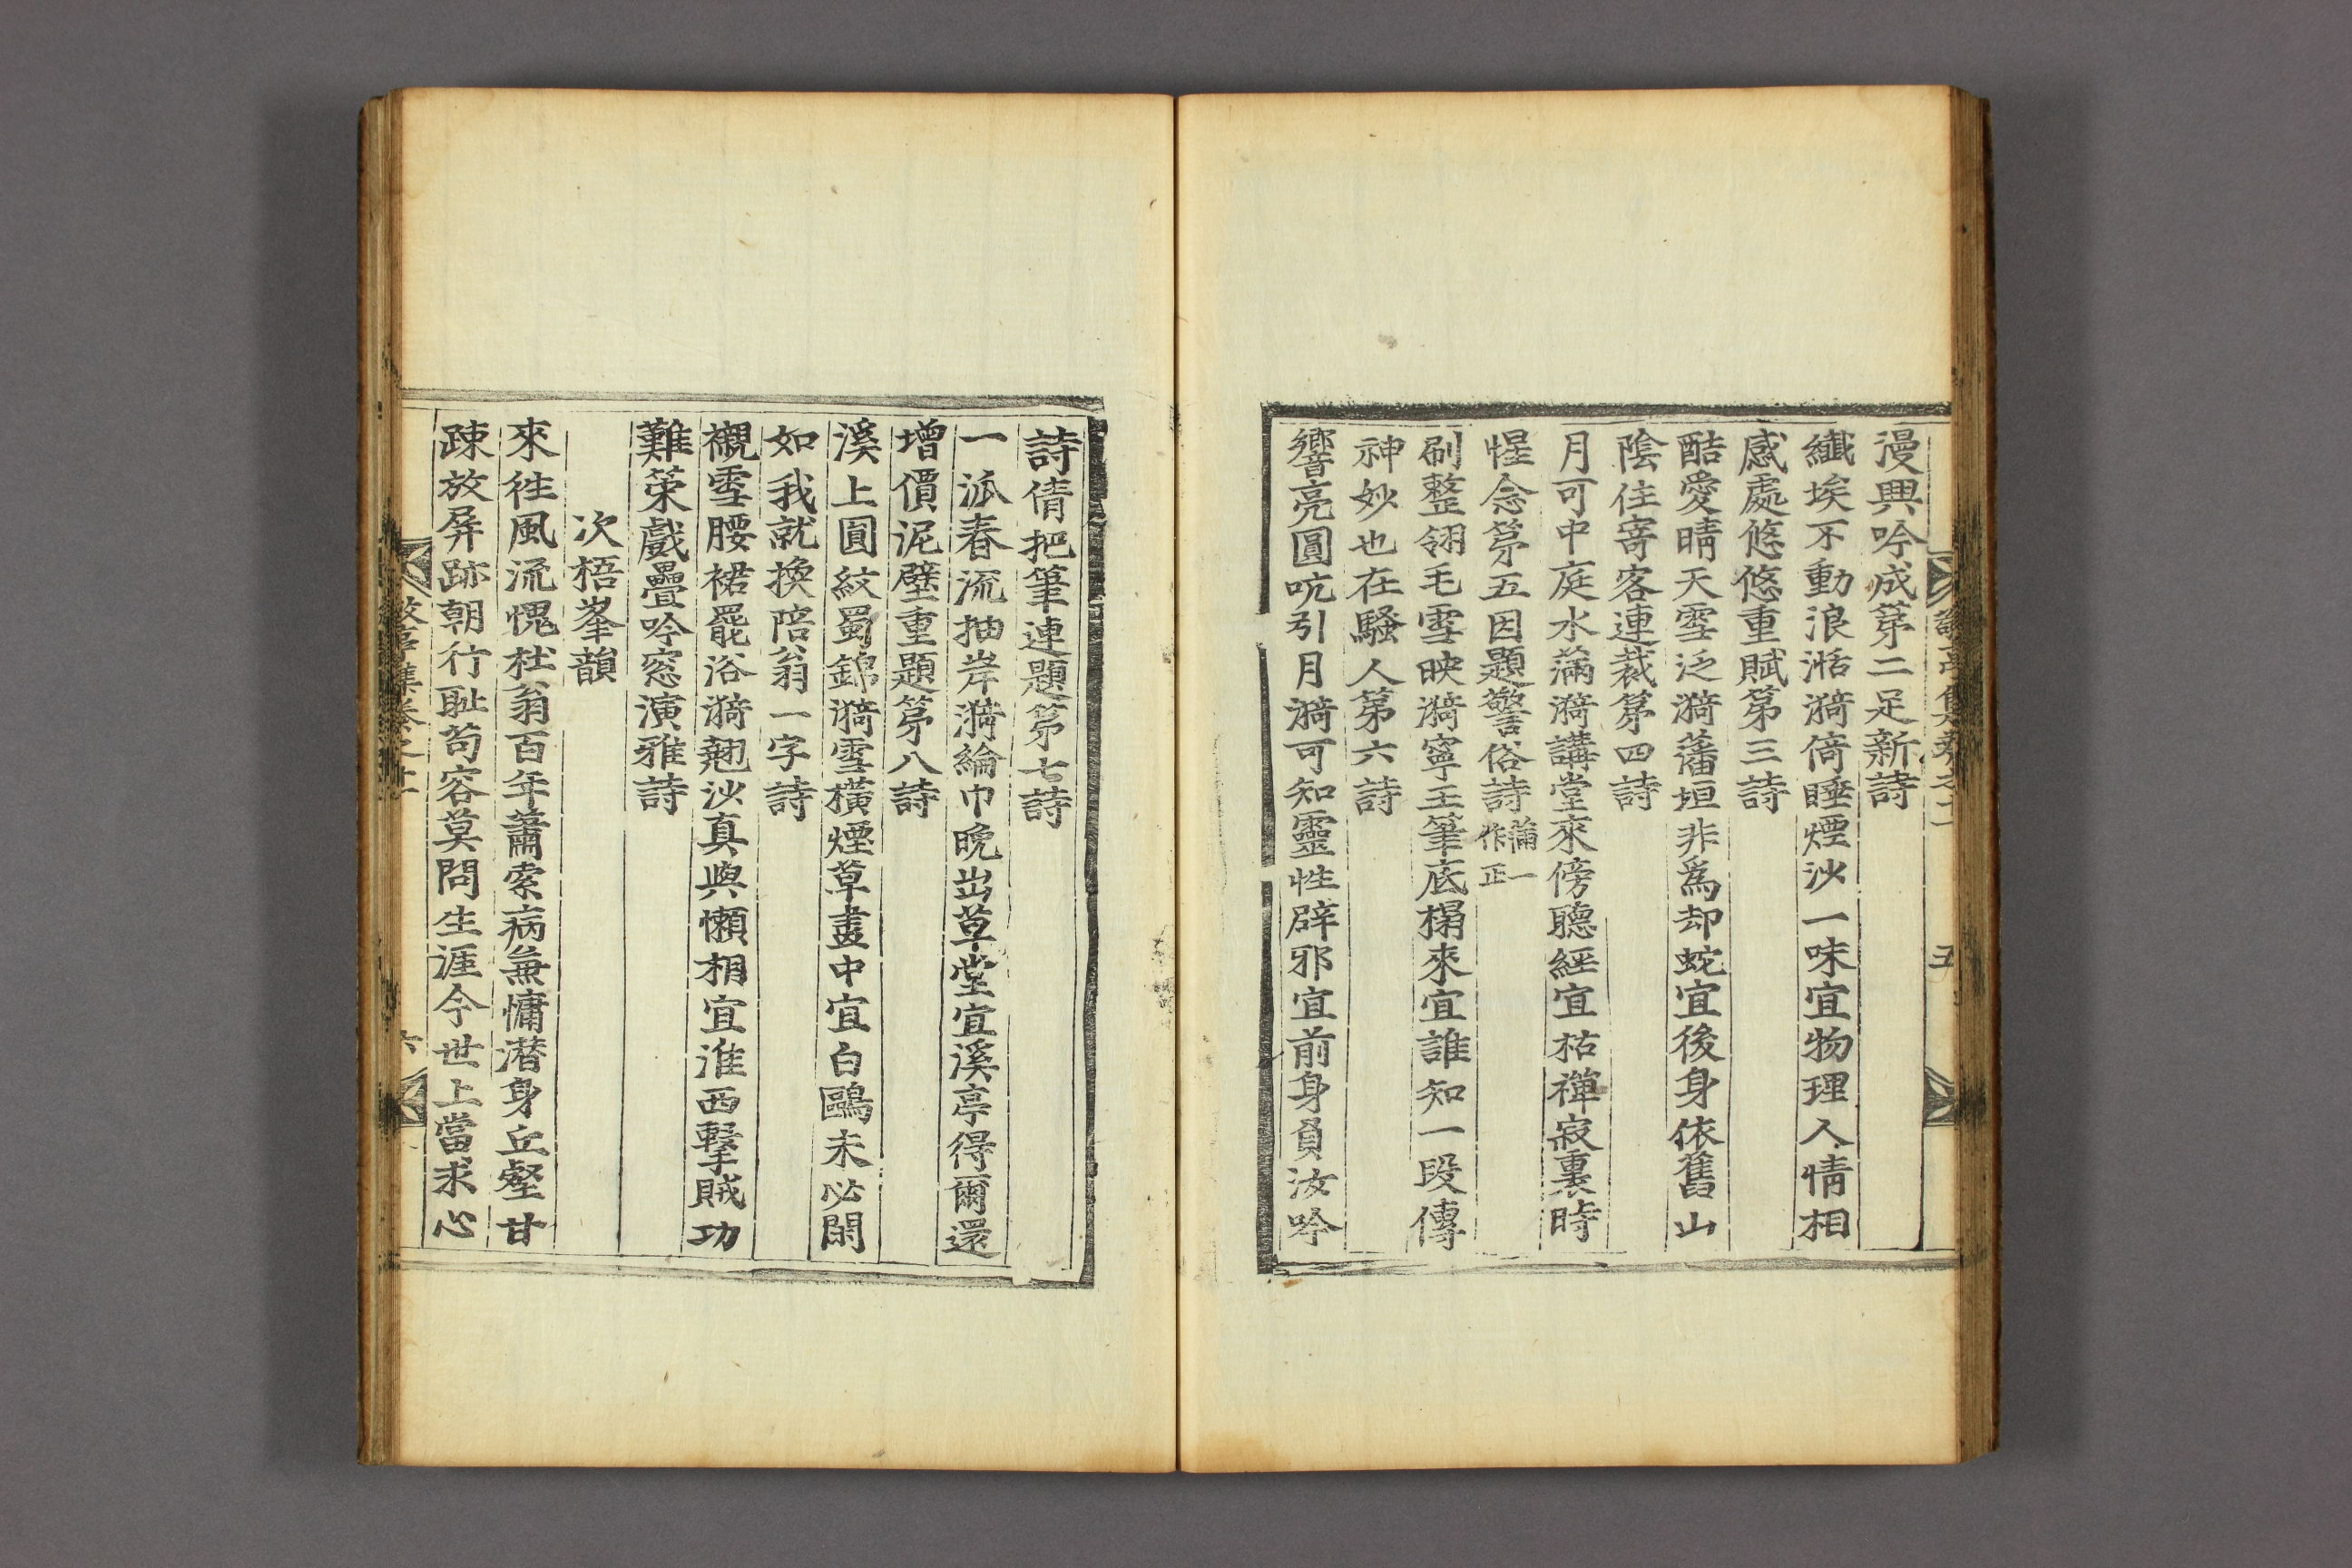 漫興吟成第二足新詩
纎埃不動浪湉漪倚睡煙沙一味宜物理人情相
感處悠悠重賦第三詩
酷愛晴天雪泛漪藩垣非爲却蛇宜後身依舊山
陰住寄客連裁第四詩
月可中庭水滿漪講堂來傍聽經宜枯禪寂裏時
惺念第五因題警俗詩 滿一作正
刷整翎毛雪映漪寧王筆底榻來宜誰知一段傳
神妙也在騷人第六詩
響亮圓吭引月漪可知靈性辟邪宜前身負汝吟
五
詩倩把筆連題第七詩
一派春流抽岸漪綸巾晩出草堂宜溪亭得爾還
增價泥壁重題第八詩
溪上圓紋蜀錦漪雪橫煙草畫中宜白鷗未必閑
如我就換陪翁一字詩
襯雪腰裙罷浴漪翹沙真與懶相宜淮西擊賊功
難策戲疊吟窓演雅詩
次梧峯韻
來往風流愧杜翁百年蕭索病兼慵潛身丘壑甘
踈放屏跡朝行耻苟容莫問生涯今世上當求心
六